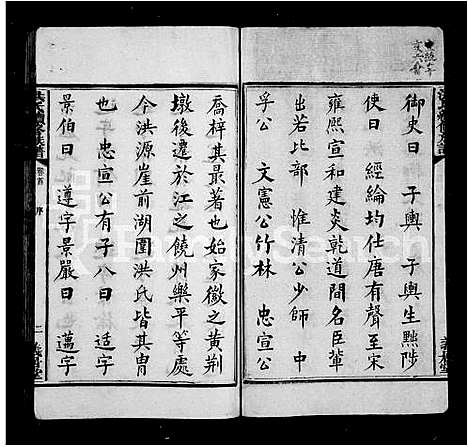 御史曰 子輿 子輿生黜陟
使曰 經綸均仕唐有聲至宋
雍熙宣和建炎乾道間名臣輩
出若比部 惟清公少師 中
孚公 文憲公竹林 忠宣公
喬梓其最著也始家徽之黃荆
墩後遷於江之饒州樂平等處
今洪源崖前湖圍洪氏皆其冑
也 忠宣公有子八曰 适字
景伯曰 遵字景嚴曰 邁字
序
二
FamilySearch